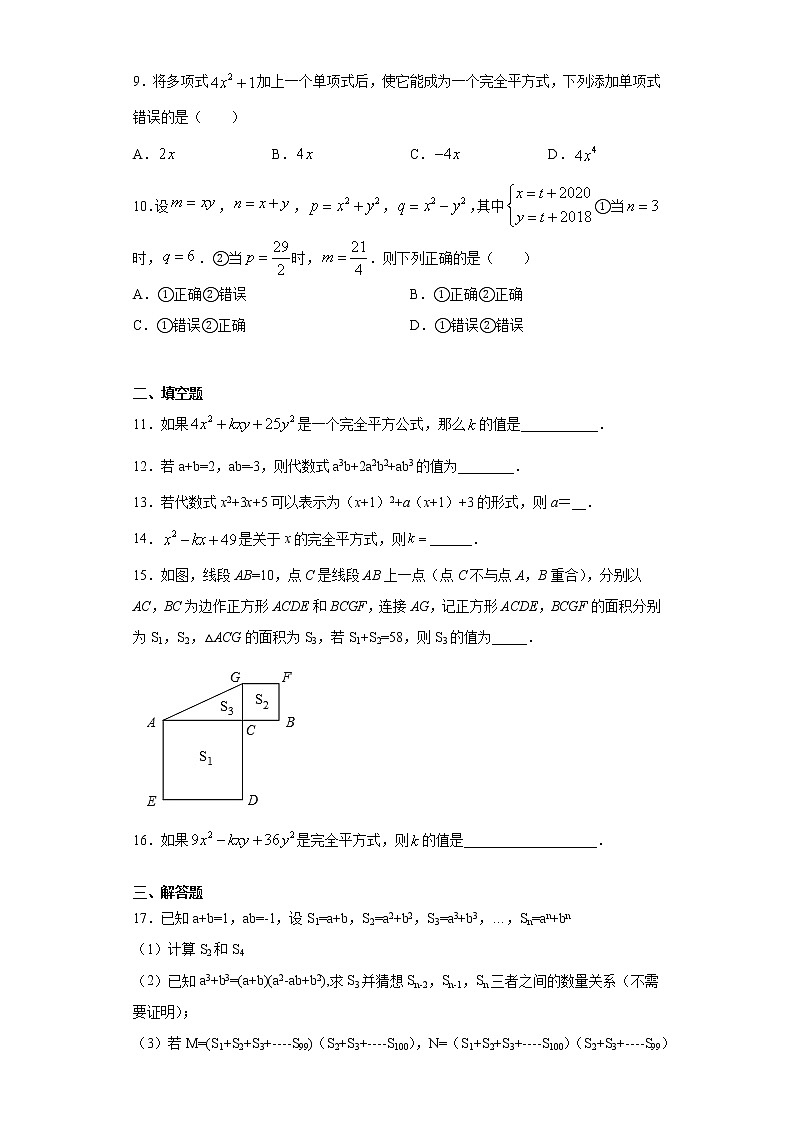 9．将多项式4x²+1加上一个单项式后，使它能成为一个完全平方式，下列添加单项式
错误的是（　　）
A．2x　　B．4x　　C．−4x　　D．4x⁴
10.设m = xy，n = x + y，p = x² + y²，q = x² − y²，其中{x = t + 2020　y = t + 2018　①当n = 3
时，q = 6．②当p = 29/2时，m = 21/4．则下列正确的是（　　）
A．①正确②错误　　B．①正确②正确
C．①错误②正确　　D．①错误②错误
二、填空题
11．如果4x² + kxy + 25y²是一个完全平方公式，那么k的值是___________．
12．若a+b=2，ab=-3，则代数式a³b+2a²b²+ab³的值为________．
13．若代数式x²+3x+5可以表示为（x+1）²+a（x+1）+3的形式，则a＝__．
14．x² − kx + 49是关于x的完全平方式，则k = ______．
15．如图，线段AB=10，点C是线段AB上一点（点C不与点A，B重合），分别以
AC，BC为边作正方形ACDE和BCGF，连接AG，记正方形ACDE，BCGF的面积分别
为S₁，S₂，△ACG的面积为S₃，若S₁+S₂=58，则S₃的值为_____．
G　F
S₃　S₂
A　C　B
S₁
E　D
16．如果9x² − kxy + 36y²是完全平方式，则k的值是___________________．
三、解答题
17．已知a+b=1，ab=-1，设S₁=a+b，S₂=a²+b²，S₃=a³+b³，…，Sₙ=aⁿ+bⁿ
（1）计算S₂和S₄
（2）已知a³+b³=(a+b)(a²-ab+b²),求S₃并猜想Sₙ₋₂，Sₙ₋₁，Sₙ三者之间的数量关系（不需
要证明）；
（3）若M=(S₁+S₂+S₃+----S₉₉)（S₂+S₃+----S₁₀₀），N=（S₁+S₂+S₃+----S₁₀₀）（S₂+S₃+----S₉₉）